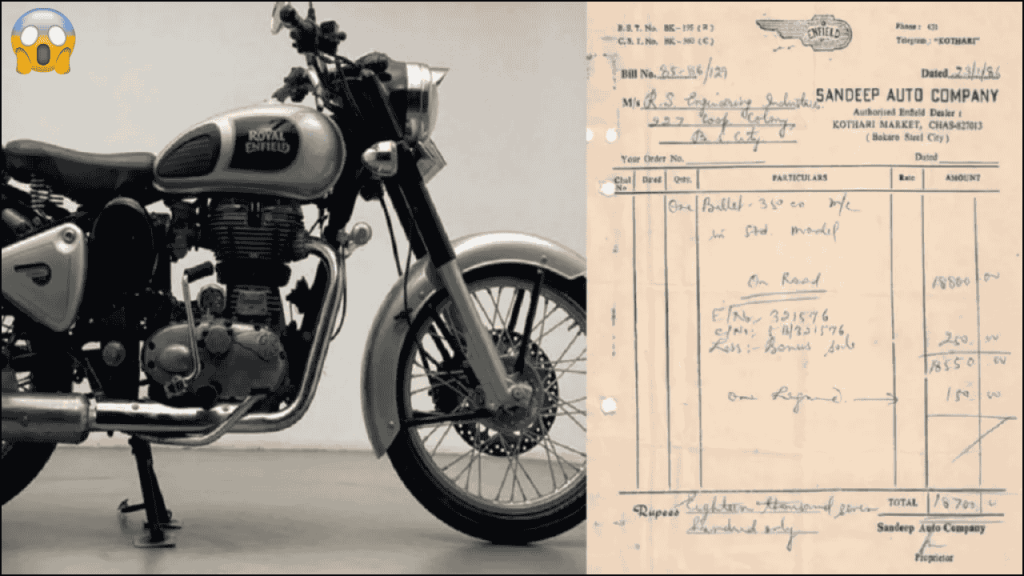 ROYAL
ENFIELD
B.S.T. No. BK-195 (R)
C.S.T. No. BK-360 (C)
ENFIELD
Phone: 431
Telegram: "KOTHARI"
Bill No. 85-86/129
Dated 23/1/86
M/s R.S. Engineering Industries
SANDEEP AUTO COMPANY
227 Coop Colony,
Authorised Enfield Dealer:
KOTHARI MARKET, CHAS-827013
B. City
(Bokaro Steel City)
Your Order No.
Dated
No Qnty. PARTICULARS Rate AMOUNT
One Bullet-350 cc m/c
in Std. model
On Road 18800 00
E/No. 321576
C/No: 5B/321576
Less:- Bonus 250. 00
18550 00
One 150. 00
TOTAL 18700
Rupees Eighteen thousand seven
hundred only
Sandeep Auto Company
Proprietor